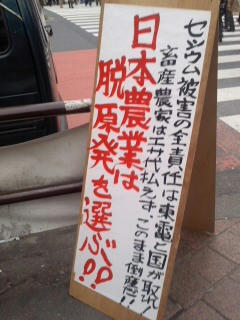 セシウム被害の全責任は東電と国が取れ!
畜産農家はエサ代払えず、このまま倒産だ!!
日本農業は
脱原発を選ぶ!!